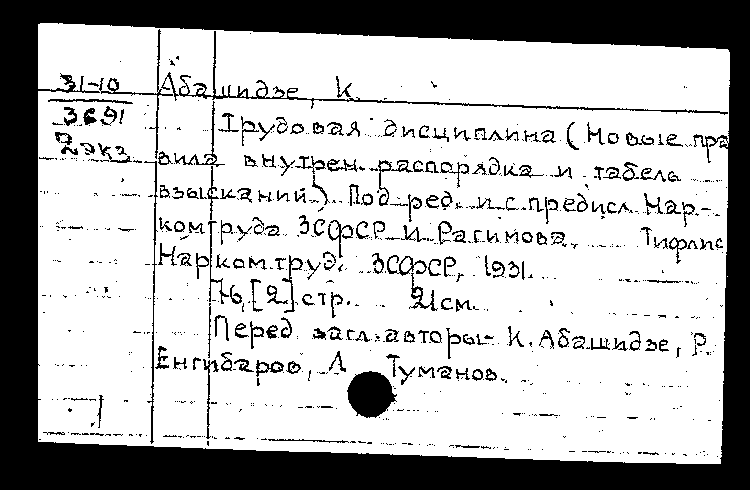 31-10
3691
2 экз
Абашидзе, К.
Трудовая дисциплина (Новые пра
вила внутрен. распорядка и табель
взысканий). Под ред. и с предисл. Нар-
комтруда ЗСФСР И. Рагимова. Тифлис
Наркомтруд. ЗСФСР, 1931.
76, [2] стр. 21см.
Перед загл. авторы- К. Абашидзе, Р.
Енгибаров, А Туманов.